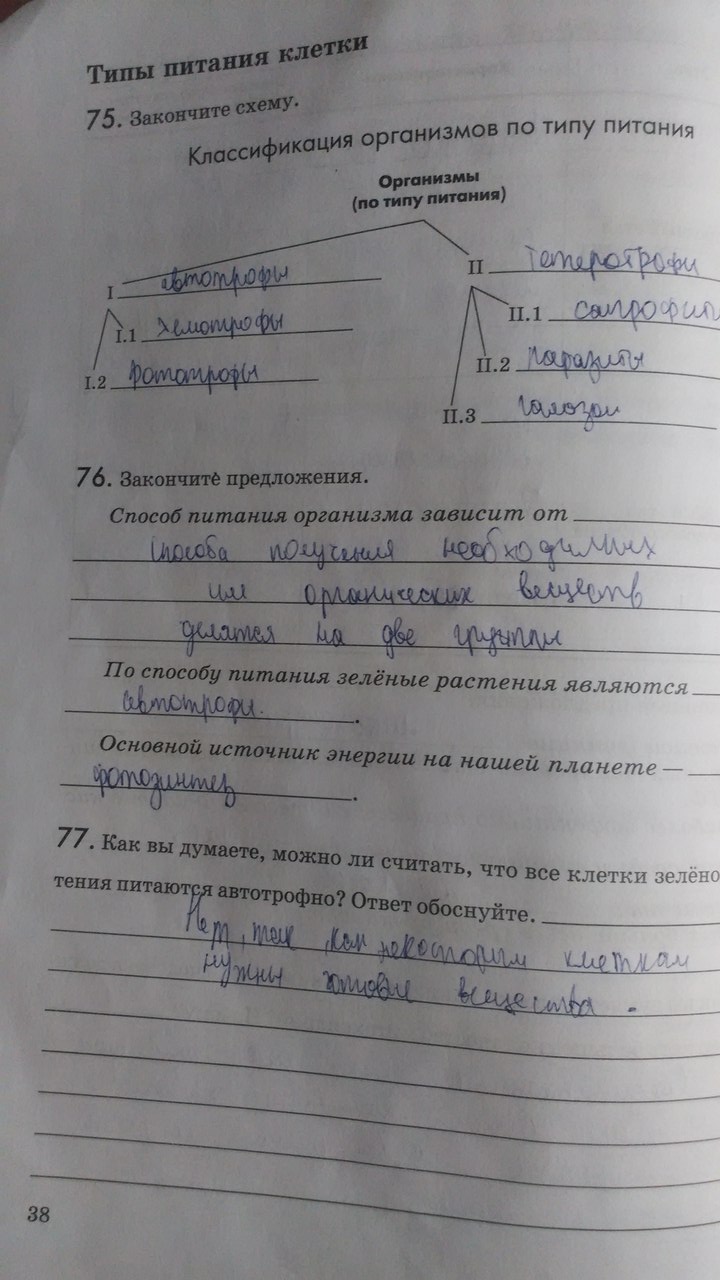 Типы питания клетки
75. Закончите схему.
Классификация организмов по типу питания
Организмы
(по типу питания)
I автотрофы
II гетеротрофи
I.1 хемотрофы
II.1 сапрофит
I.2 фототрофы
II.2 паразиты
II.3 голозои
76. Закончите предложения.
Способ питания организма зависит от
способа получения необходимих
им органических веществ
делятся на две группы
По способу питания зелёные растения являются
автотрофи.
Основной источник энергии на нашей планете —
фотозинтез
77. Как вы думаете, можно ли считать, что все клетки зелёно
тения питаются автотрофно? Ответ обоснуйте.
Нет, так, как некоторым клеткам
нужны готовые вещества.
38